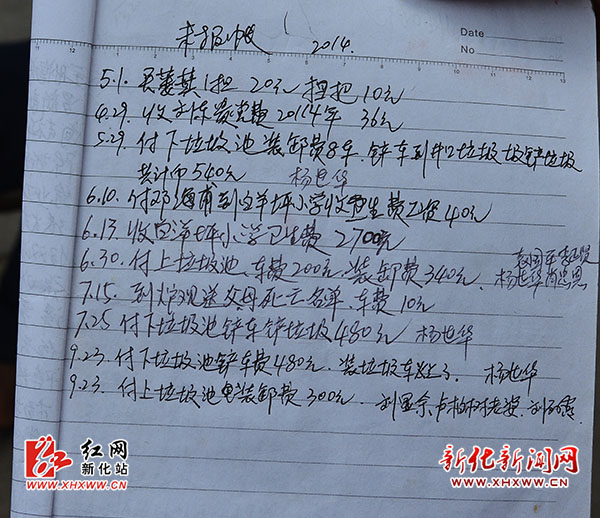 未报帐 2014.
Date
No
5.1. 买簍萁1担 20元 扫把10元
4.29. 收 费2014年 36元
5.29. 付下垃圾池装卸费8车. 铲车到井口垃圾 铲垃圾
共计币540元 杨世华
6.10. 付邓海甫到白洋坪小学收卫生费工资40元
6.13. 收白洋坪小学卫生费 2700元
6.30. 付上垃圾池、车费200元. 装卸费340元. 杨世华
7.15. 到 送父母死亡名单. 车费10元
7.25 付下垃圾池铲车铲垃圾480元 杨世华
9.23. 付下垃圾池铲车费480元. 装垃圾车 杨世华
9.23. 付上垃圾池 装卸费300元.
红网
新化站
WWW.XHXWW.CN
新化新闻网
WWW.XHXWW.CN